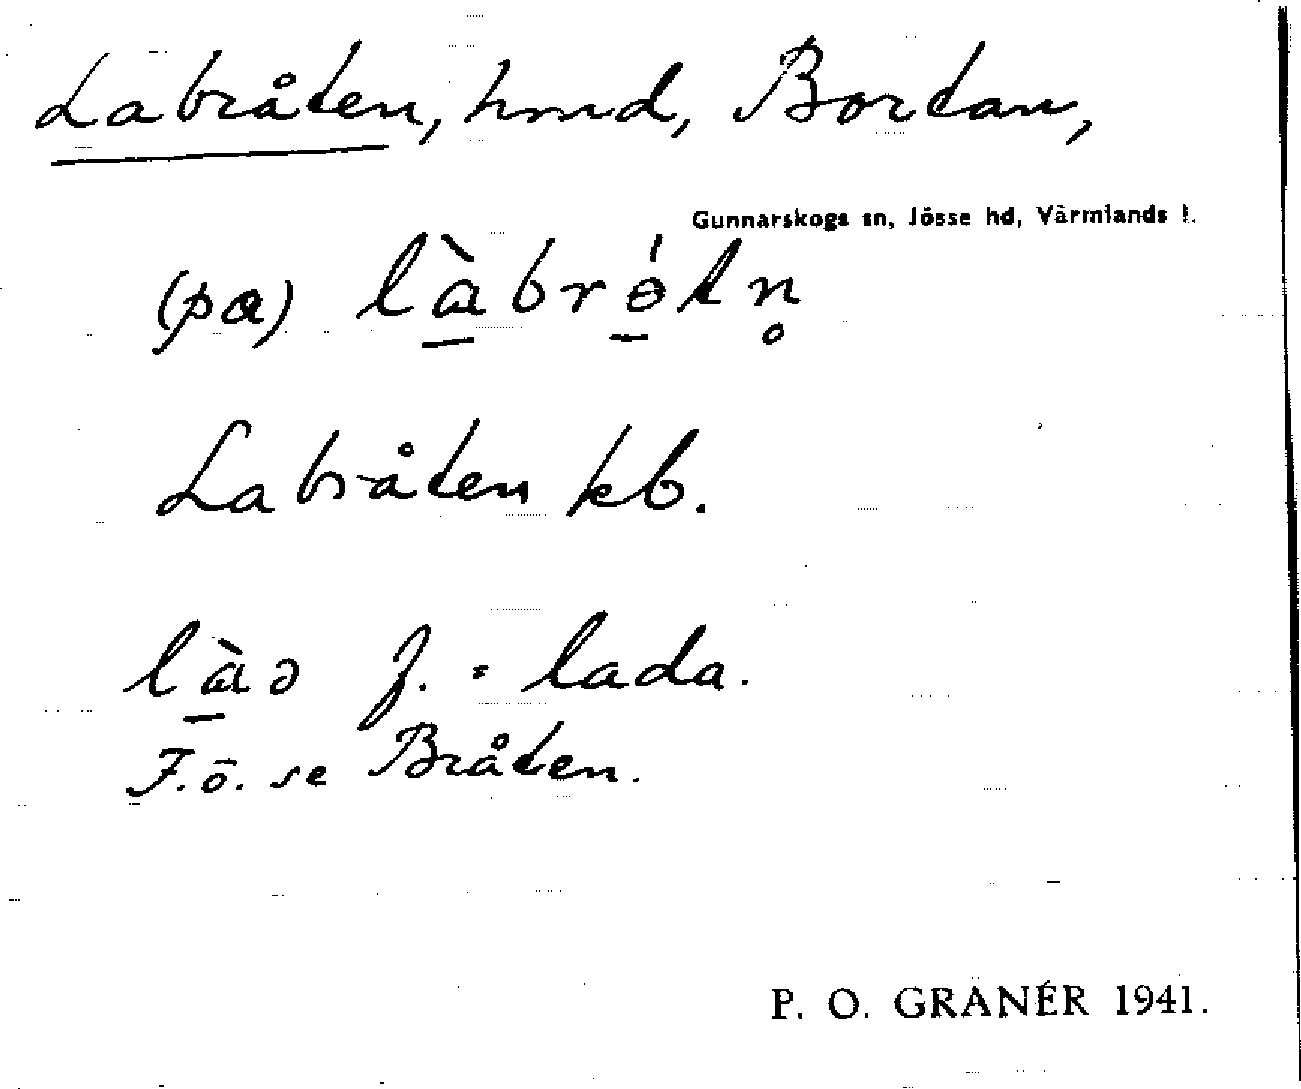 Labråten, hmd, Bortan,
Gunnarskogs sn, Jösse hd, Värmlands l.
(pɑ) lɑ̀brɵ́tn̥
Labråten kb.
lɑ̀ə f. = lada.
F.ö. se Bråten.
P. O. GRANÉR 1941.